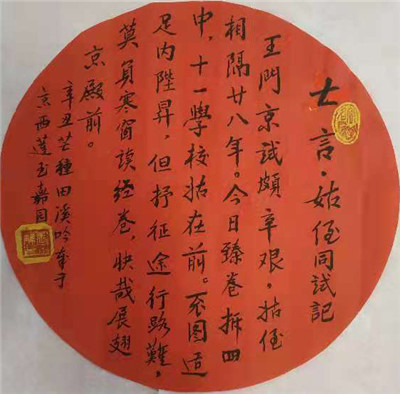 七言·姑侄同試記
王門京試頗辛艰,姑侄
相隔廿八年。今日臻卷拆四
中,十一學校姑在前。不图造
足内陞昇,但抒征途行路難,
莫負寒窗读经卷,快哉展翅
京殿前。
辛丑芒種田溪吟于
京西蓮玉嘉園